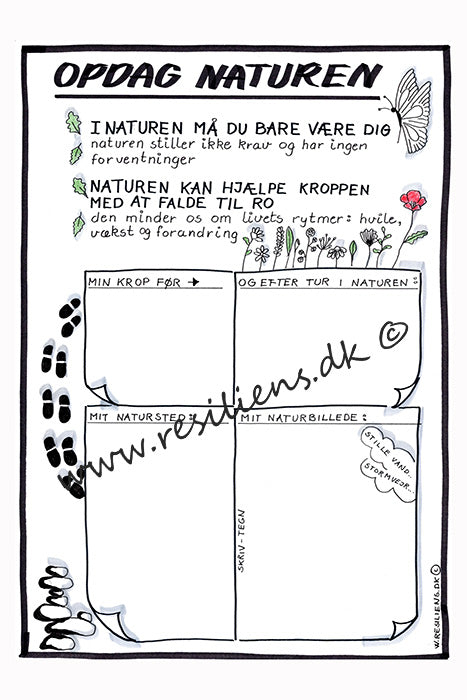 OPDAG NATUREN
I NATUREN MÅ DU BARE VÆRE DIG
naturen stiller ikke krav og har ingen
forventninger
NATUREN KAN HJÆLPE KROPPEN
MED AT FALDE TIL RO
den minder os om livets rytmer: hvile,
vækst og forandring
MIN KROP FØR →
OG EFTER TUR I NATUREN:
MIT NATURSTED:
MIT NATURBILLEDE:
STILLE VAND...
STORMVEJR...
SKRIV - TEGN
www.resiliens.dk ©
W.RESILIENS.DK ©